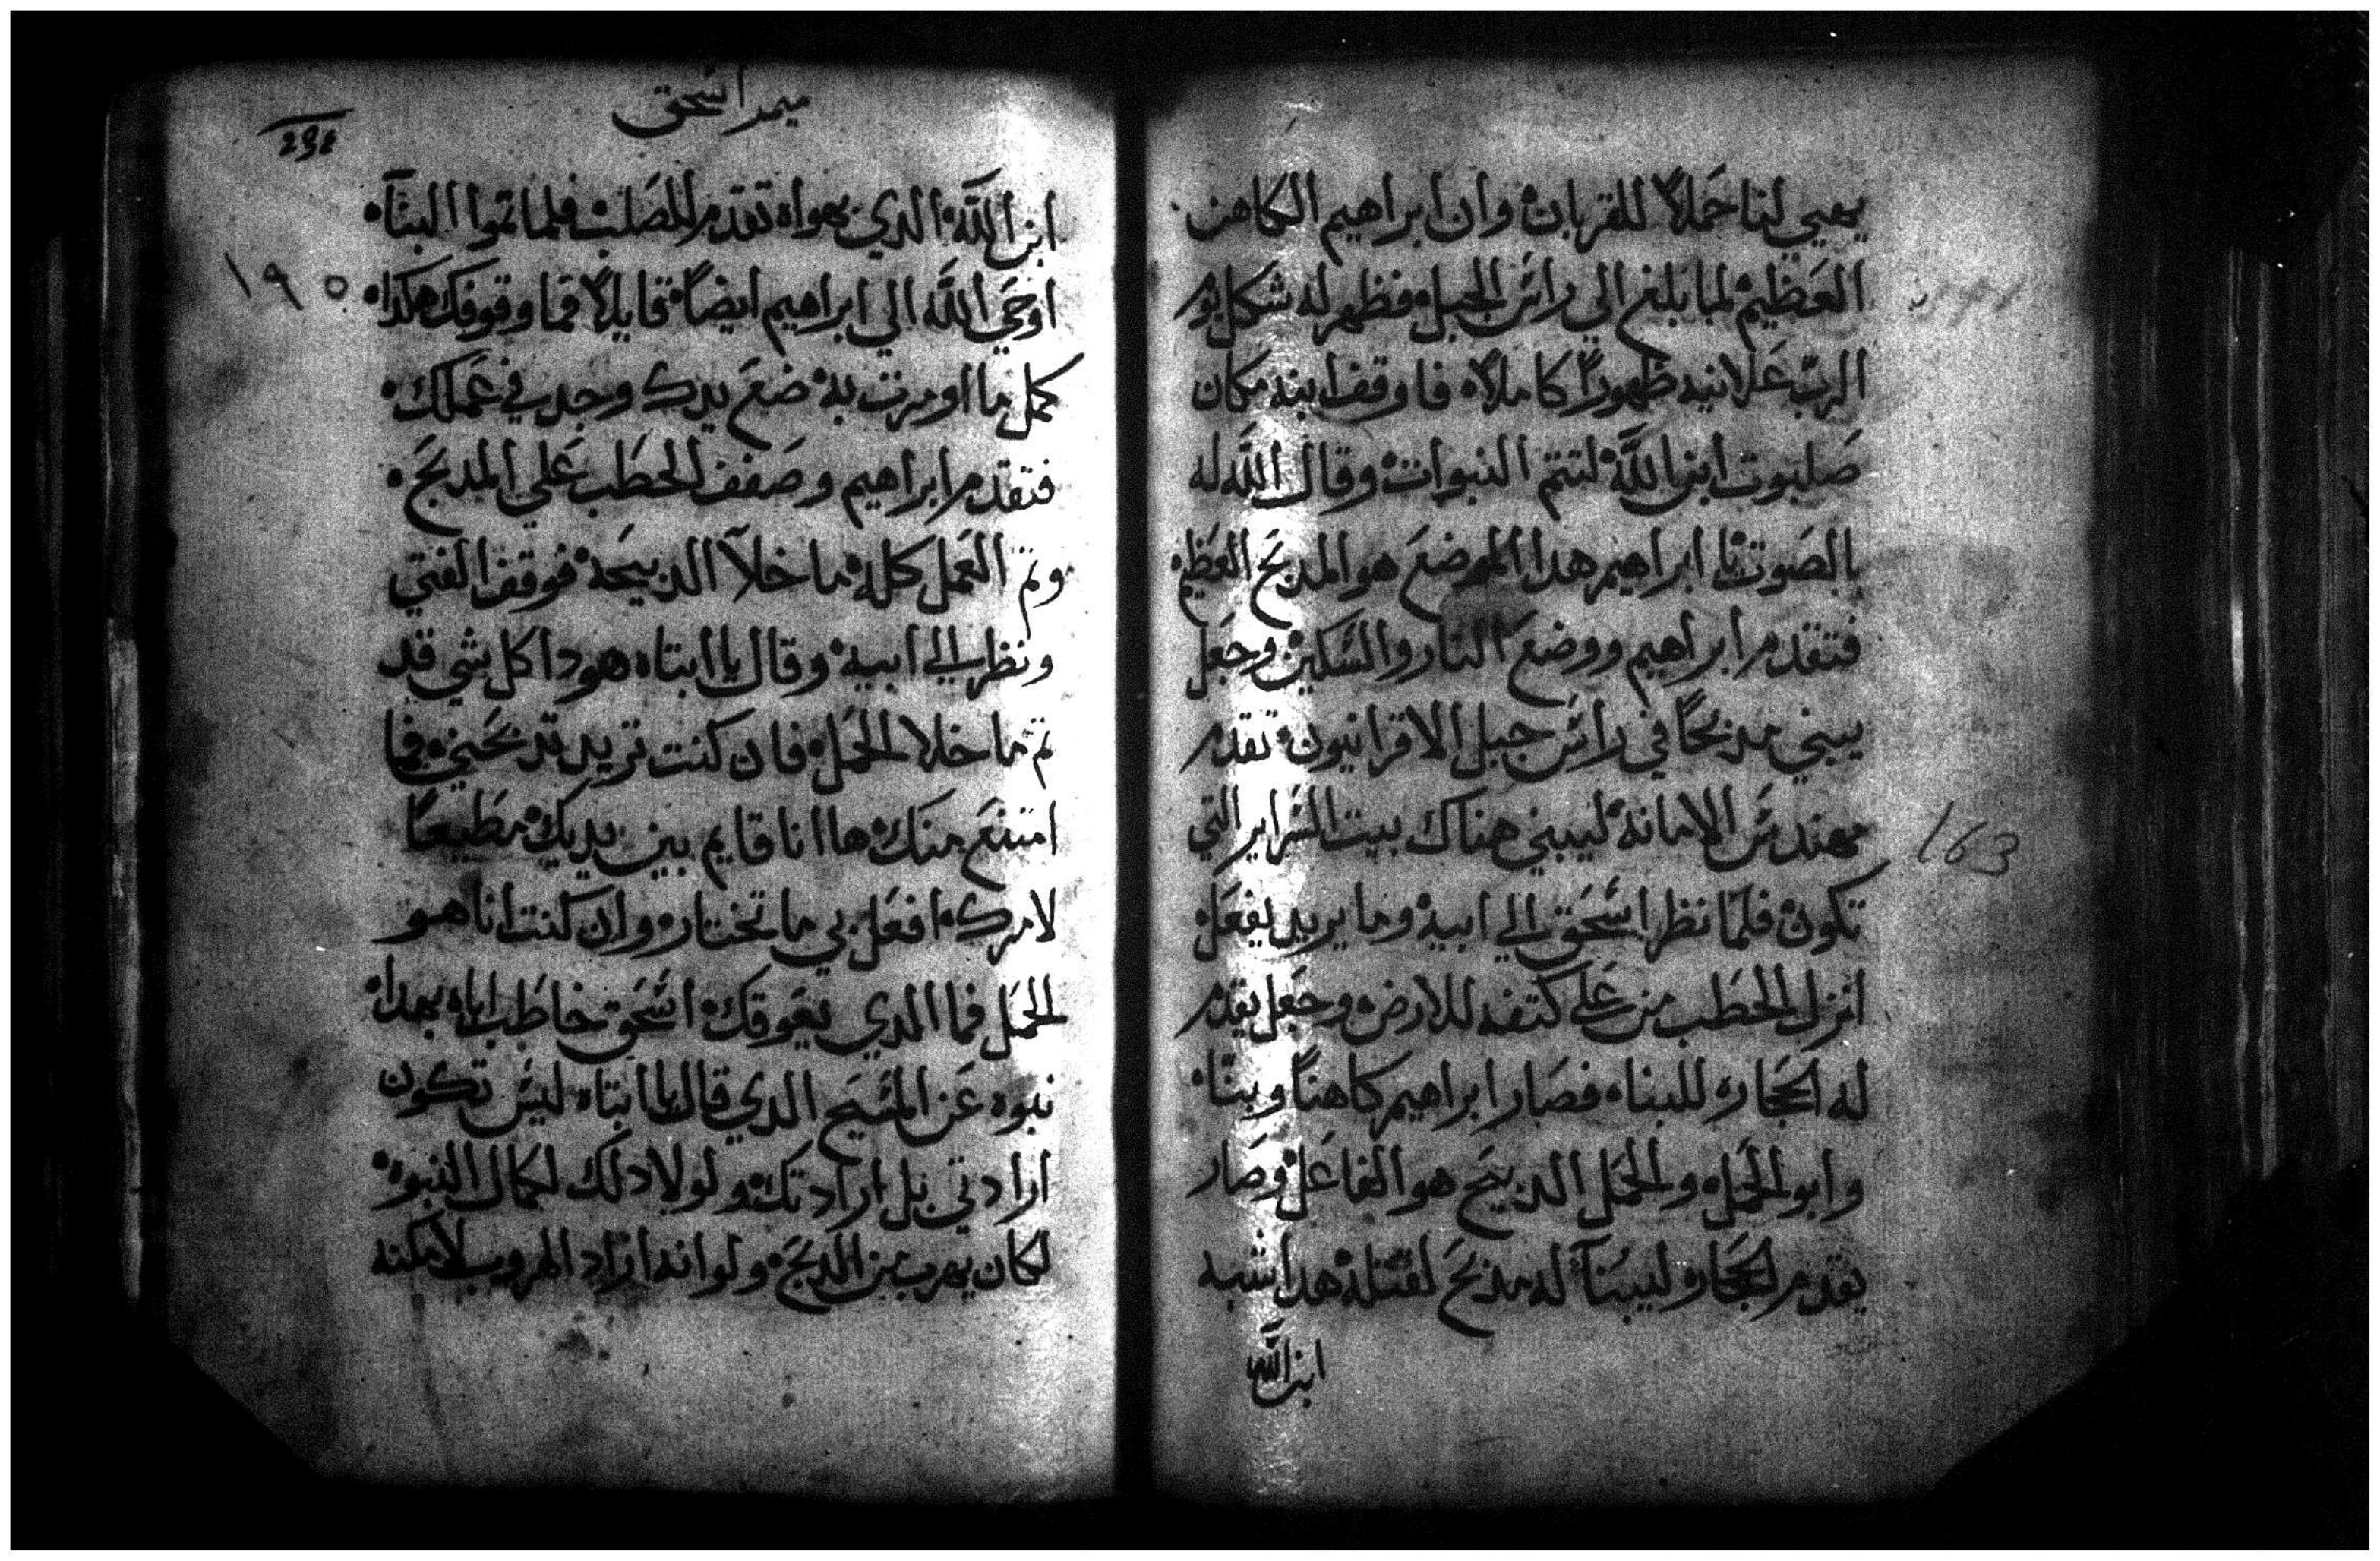 يهيي لنا حملاً للقربان وان ابراهيم الكاهن
العظيم لما بلغ الي راس الجبل فظهر له شكل نور
الرب علانيه ظهوراً كاملاً فاوقف ابنه مكان
صلبوت ابن الله لتتم النبوات وقال الله له
بالصوت يا ابراهيم هدا الموضع هو المدبح العظيم
فتقدم ابراهيم ووضع النار والسكين وجعل
يبني مدبحاً في راس جبل الاقرانيون تقدم
مهندس الامانة ليبني هناك بيت السراير التي
تكون فلما نظر اسحق الي ابيه وما يريد يفعل
انزل الحطب من علي كتفه للارض وجعل يقدم
له الحجاره للبناه فصار ابراهيم كاهناً وبنّا
وابو الحمل والحمل الدبيح هو الفاعل وصار
يقدم الحجاره ليبنا له مدبح لقتله هدا شبه
ابن الله
ميمر اسحق
١٩٥
ابن الله الدي بهواه تقدم للصلب فلما تموا البنآ
اوحي الله الي ابراهيم ايضاً قايلاً فما وقوفك هكدا
كمل ما اومرت به ضع يدك وجد في عملك
فتقدم ابراهيم وصفف الحطب علي المدبح
وتم العمل كله ما خلا الدبيحة فوقف الفتي
ونظر الي ابيه وقال يا ابتاه هودا كل شي قد
تم ما خلا الحمل فان كنت تريد تدبحني فما
امتنع منك ها انا قايم بين يديك مطيعاً
لامرك افعل بي ما تختاره وان كنت انا هو
الحمل فما الدي يعوقك اسحق خاطب اباه بهدا
نبوه عن المسيح الدي قال يا ابتاه ليس تكون
ارادتي بل ارادتك ولولا دلك لكمال النبوه
لكان يهرب من الدبح ولو انه اراد الهروب لامكنه
163